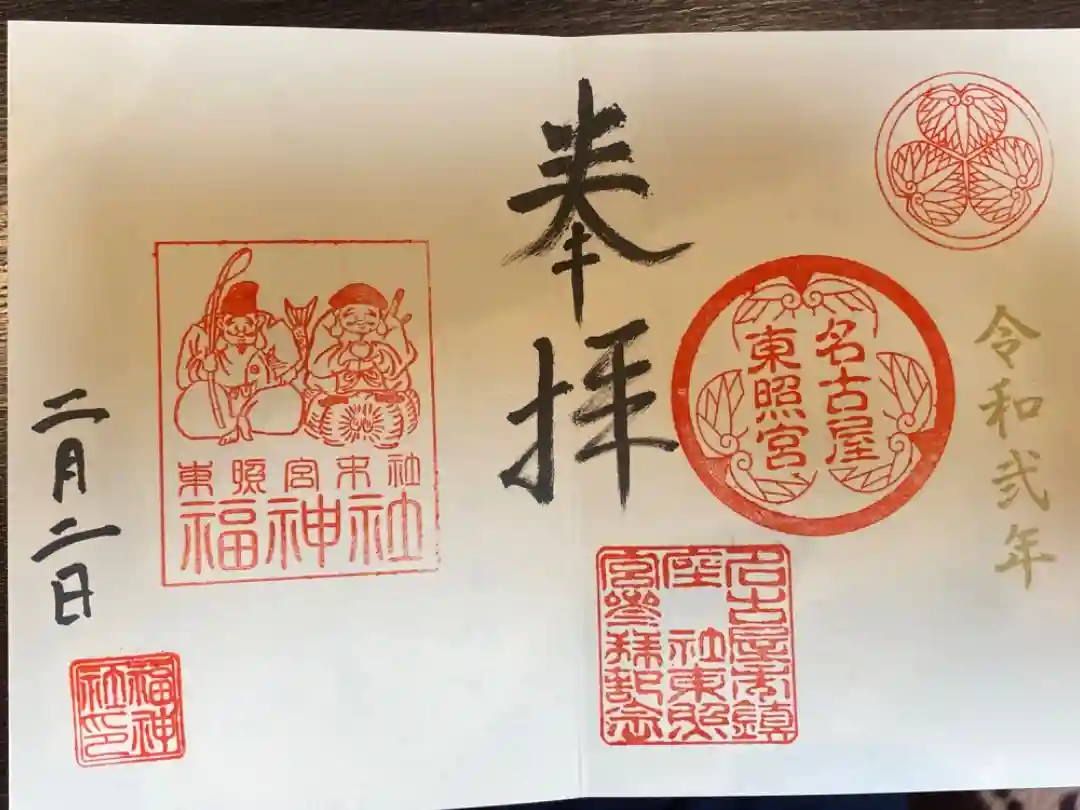 令和弐年
名古屋
東照宮
名古屋市鎮
座 社東照
宮参拝記念
奉拝
東照宮末社
福神社
二月二日
福神
社印